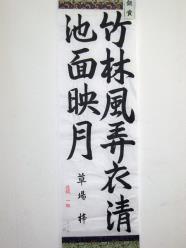 竹林風弄衣清
池面映月
草場